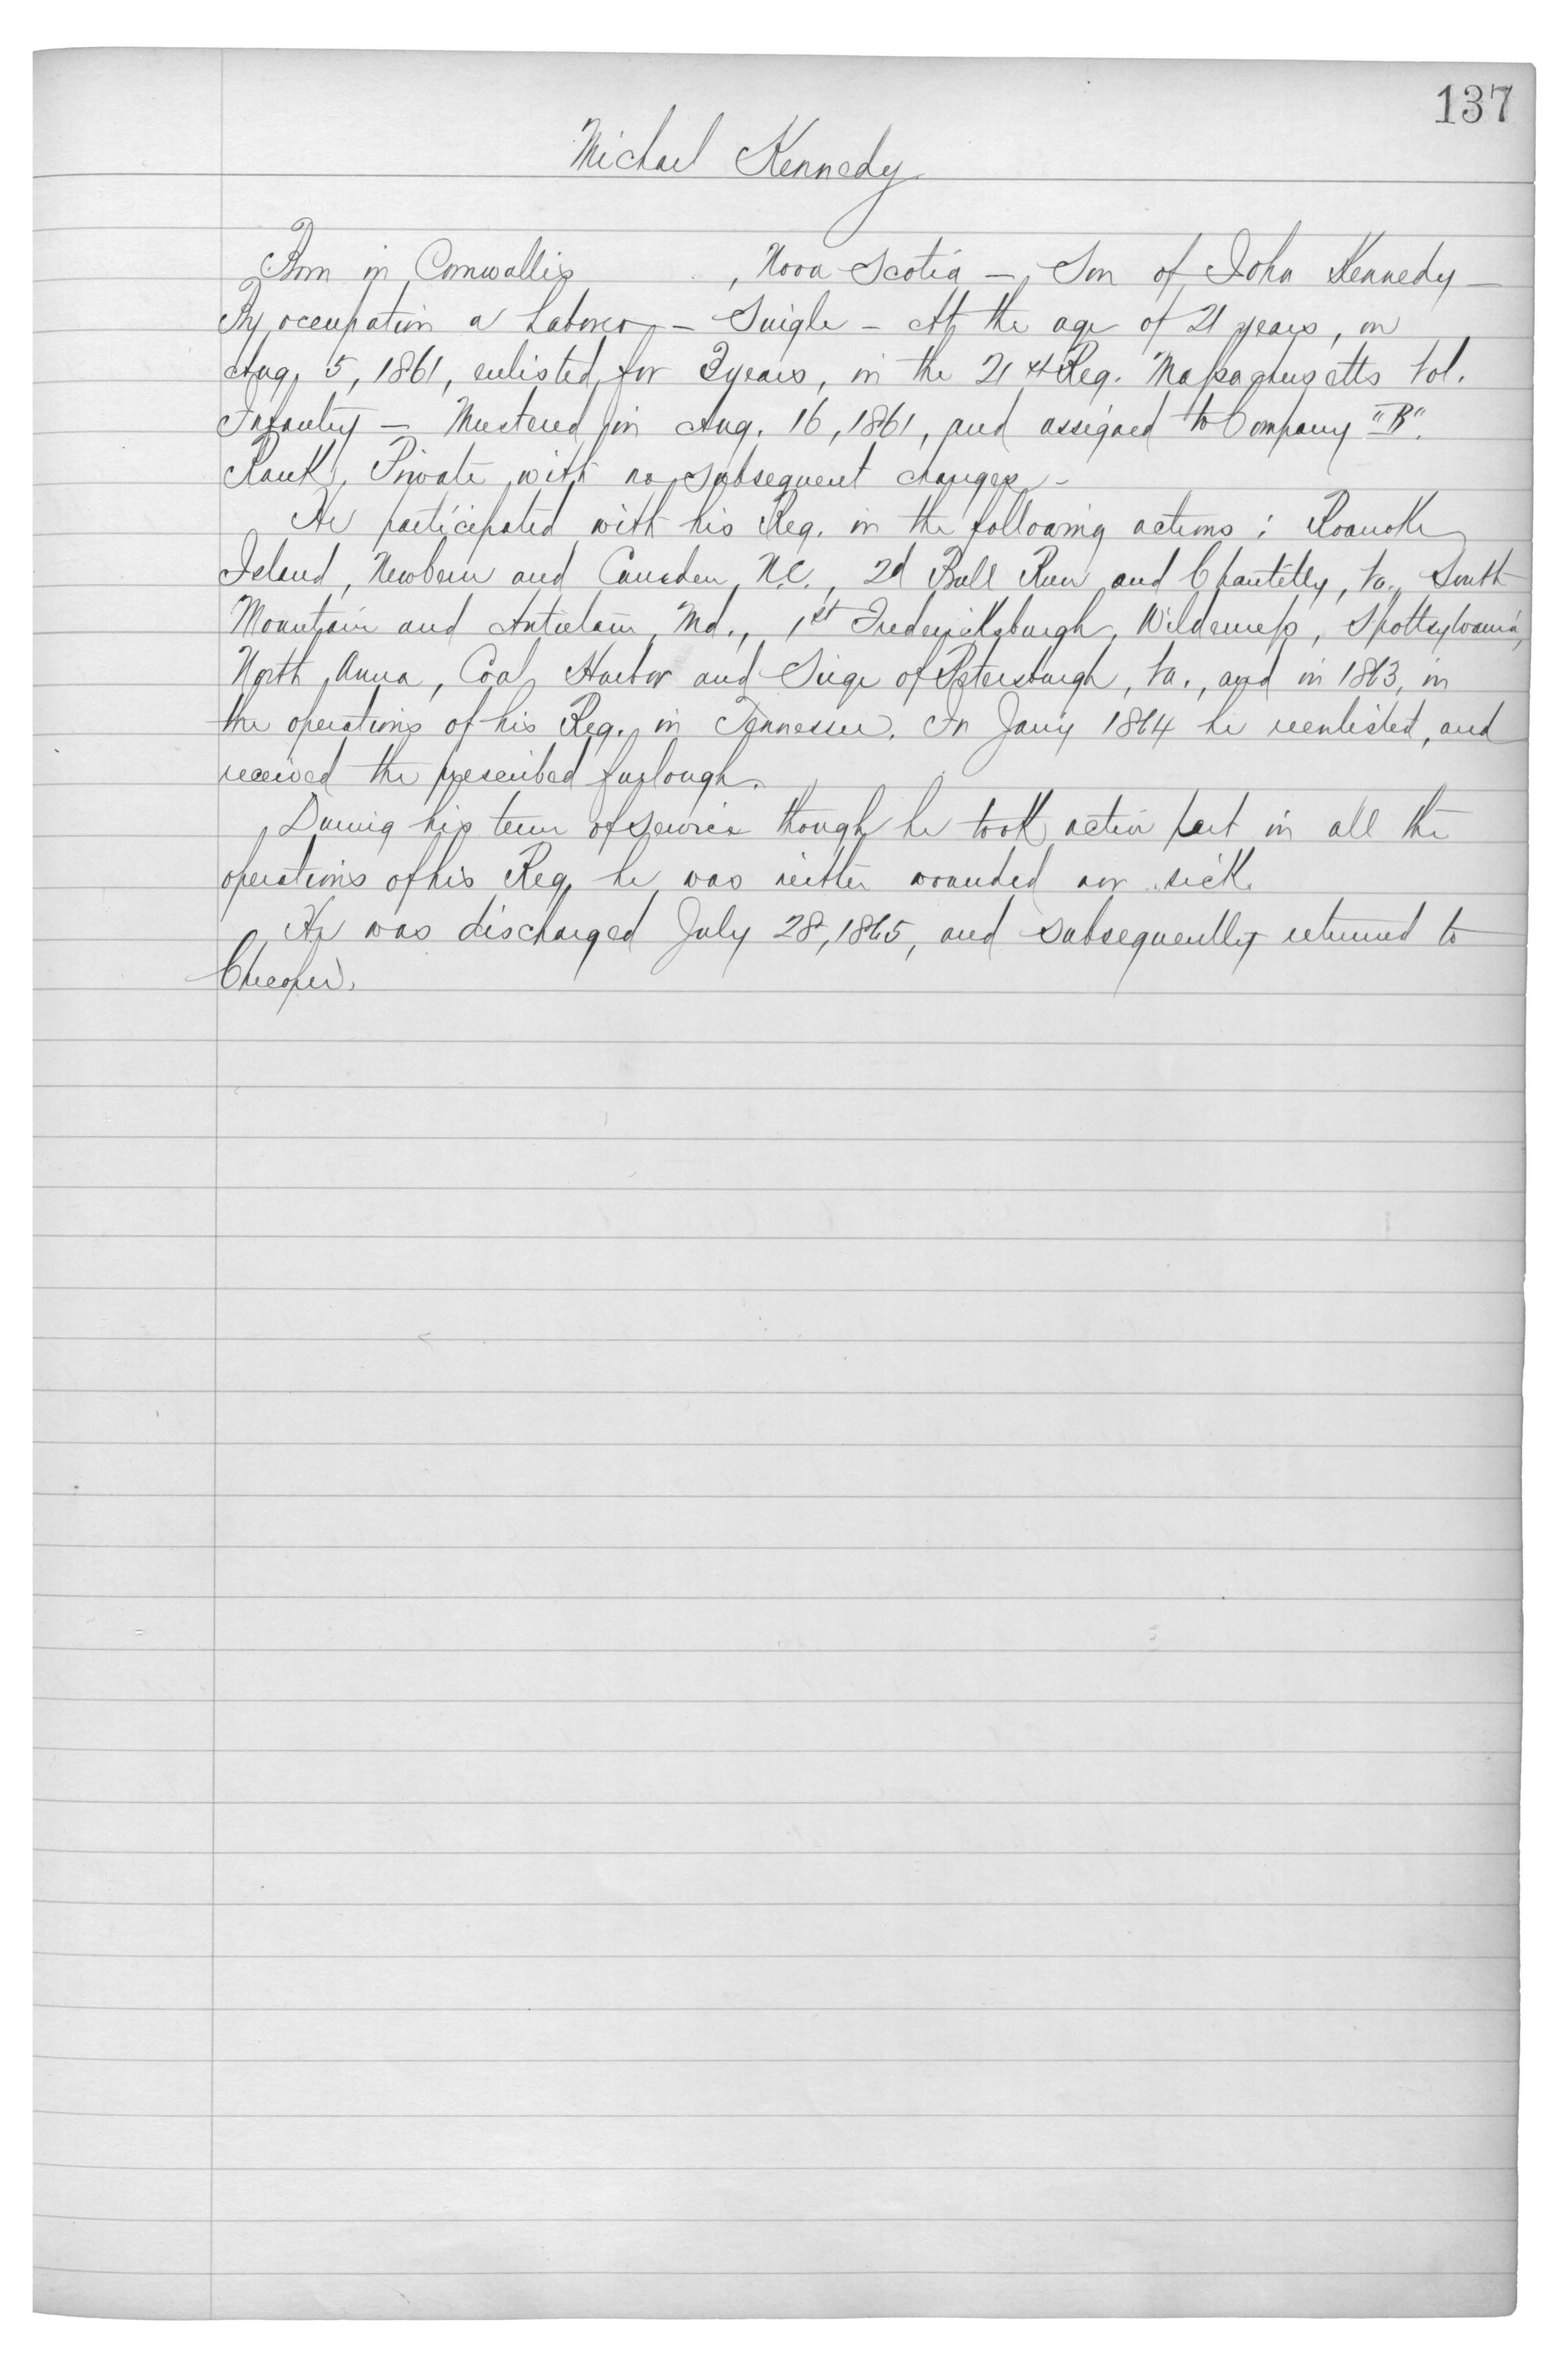 137
Michael Kennedy
Born in Cornwallis , Nova Scotia — Son of John Kennedy —
By occupation a Laborer — Single — At the age of 21 years, on
Aug. 5, 1861, enlisted for 3 years, in the 21st Reg. Massachusetts Vol.
Infantry — Mustered in Aug. 16, 1861, and assigned to Company "B".
Rank, Private with no subsequent changes —
He participated with his Reg. in the following actions: Roanoke
Island, Newbern and Camden, N.C., 2d Bull Run and Chantilly, Va., South
Mountain and Antietam, Md., 1st Fredericksburgh, Wilderness, Spottsylvania,
North Anna, Coal Harbor and Siege of Petersburgh, Va., and in 1863, in
the operations of his Reg. in Tennessee. In Jan'y 1864 he reenlisted, and
received the prescribed furlough.
During his term of service though he took active part in all the
operations of his Reg. he was neither wounded nor sick.
He was discharged July 28, 1865, and subsequently returned to